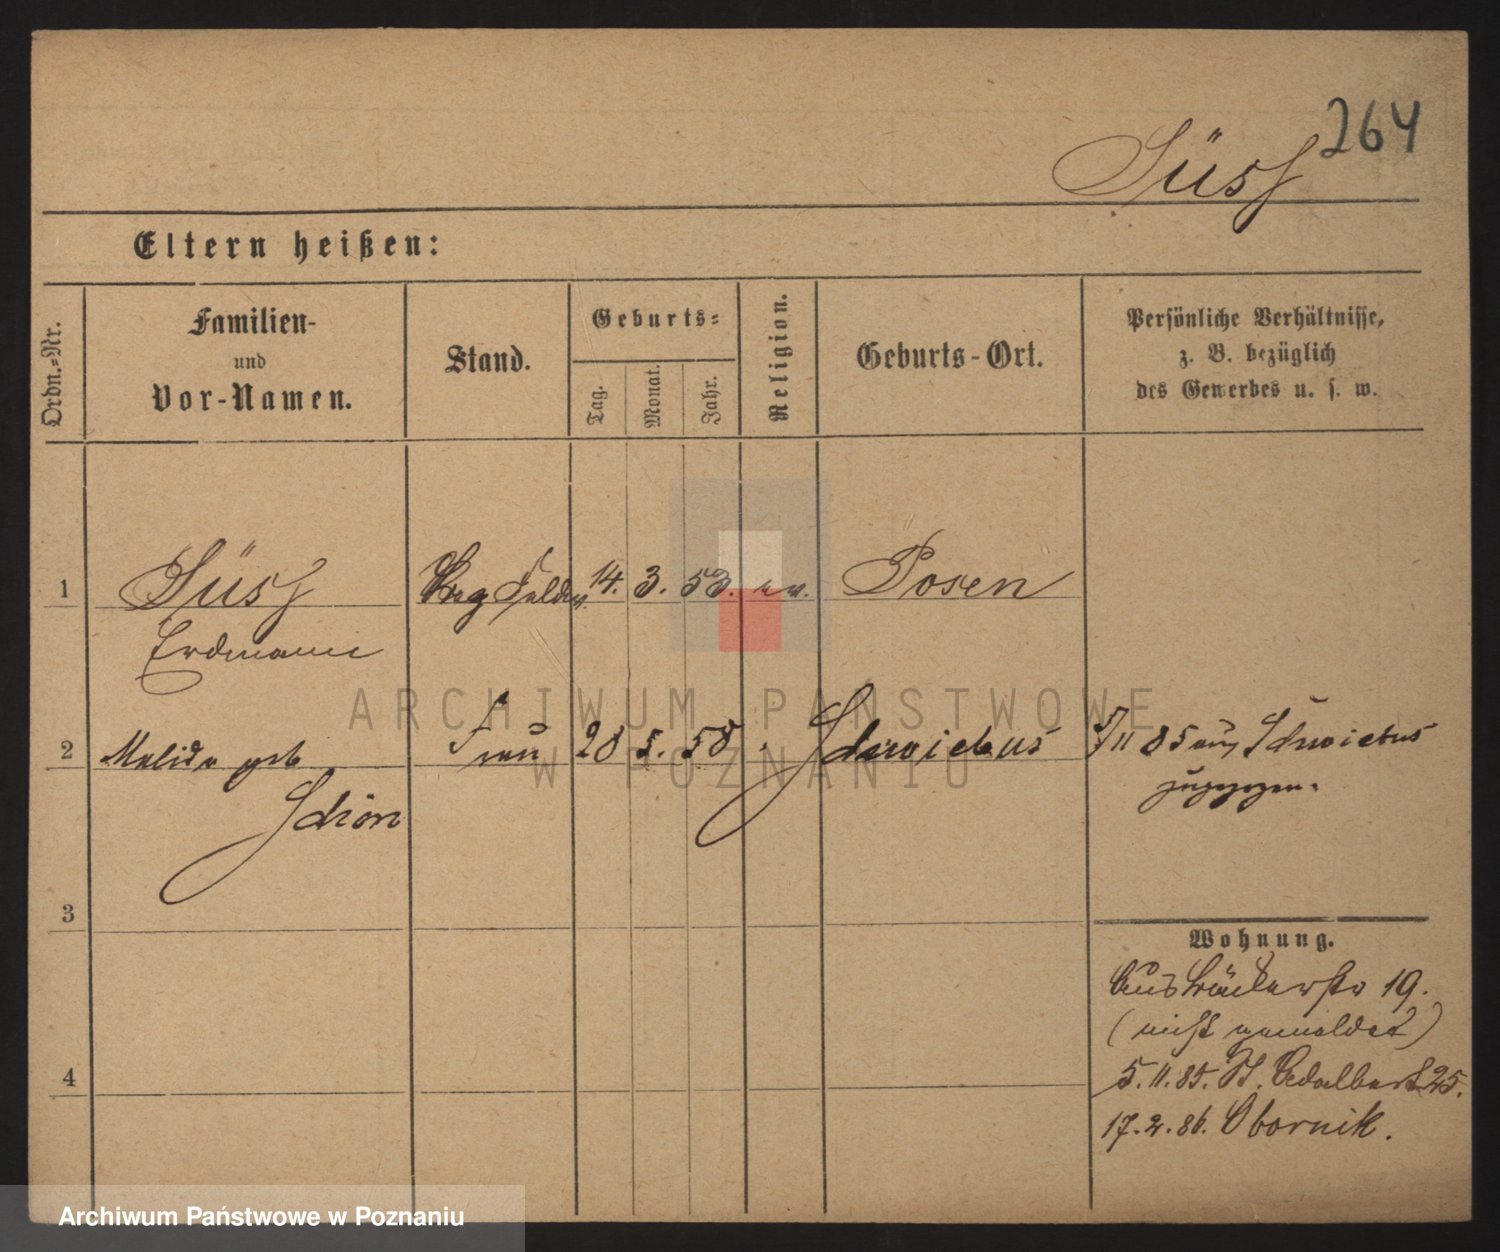 264
Süss
Eltern heißen:
Ordn.-Nr.
Familien-
und
Vor-Namen.
Stand.
Geburts-
Tag.
Monat.
Jahr.
Religion.
Geburts-Ort.
Persönliche Verhältnisse,
z. B. bezüglich
des Gewerbes u. s. w.
1 Süss 14. 3. 53. ev. Posen
Erdmann
2 geb Frau 28 5. 58 Schwiebus 5/11 85 aus Schwiebus
Schön
zugezogen.
3
Wohnung.
19.
(nicht gemeldet)
4
5.11.85. St. Adalbert 25.
17.2.86. Obornik.
ARCHIWUM PAŃSTWOWE
W POZNANIU
Archiwum Państwowe w Poznaniu